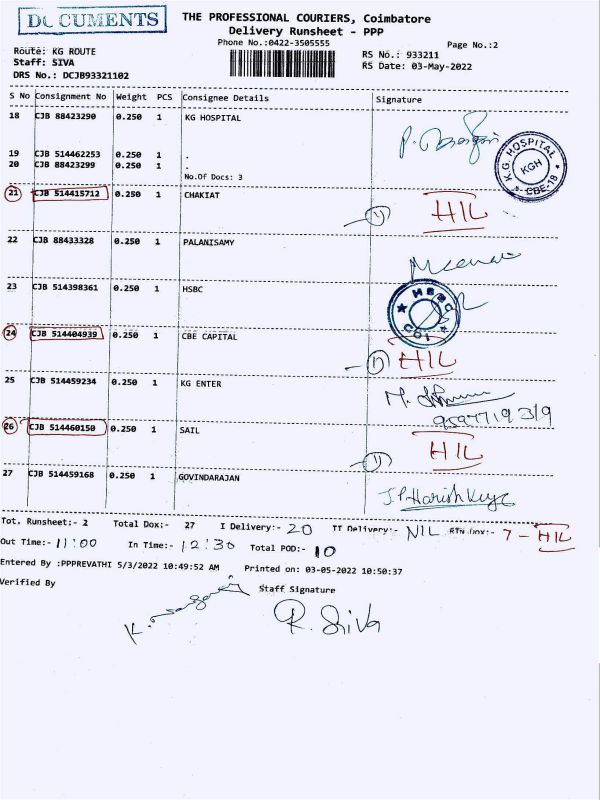 DOCUMENTS
THE PROFESSIONAL COURIERS, Coimbatore
Delivery Runsheet - PPP
Phone No.:0422-3505555
Page No.:2
Route: KG ROUTE
Staff: SIVA
DRS No.: DCJB93321102
RS No.: 933211
RS Date: 03-May-2022
S No Consignment No Weight PCS Consignee Details Signature
18 CJB 88423290 0.250 1 KG HOSPITAL
K.G. HOSPITAL KGH CBE-18
19 CJB 514462253 0.250 1 .
20 CJB 88423299 0.250 1
No.Of Docs: 3
21 CJB 514415712 0.250 1 CHAKIAT
HIL
22 CJB 88433328 0.250 1 PALANISAMY
23 CJB 514398361 0.250 1 HSBC
24 CJB 514404939 0.250 1 CBE CAPITAL
HIL
25 CJB 514459234 0.250 1 KG ENTER
26 CJB 514460150 0.250 1 SAIL
HIL
27 CJB 514459168 0.250 1 GOVINDARAJAN
Tot. Runsheet:- 2 Total Dox:- 27 I Delivery:- 20 II Delivery:- NIL RTN Dox:- 7 - HIL
Out Time:- 11:00 In Time:- 12:30 Total POD:- 10
Entered By :PPPREVATHI 5/3/2022 10:49:52 AM Printed on: 03-05-2022 10:50:37
Verified By
Staff Signature
R. Siva